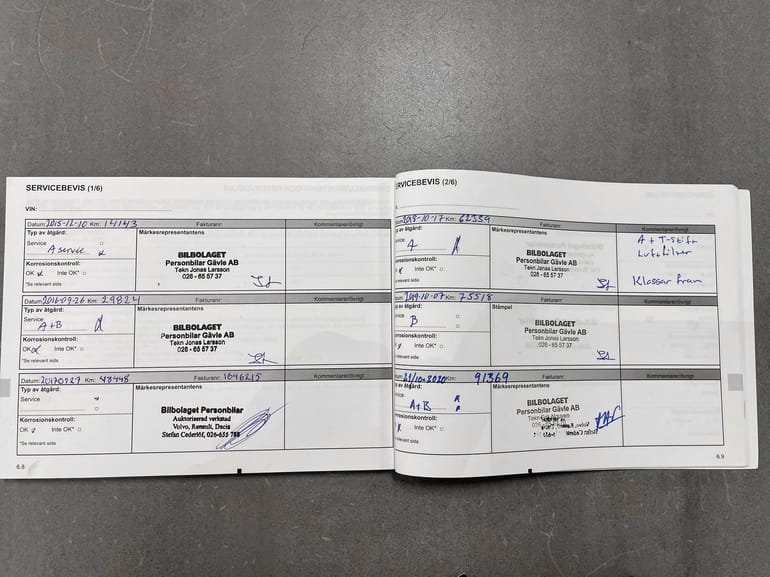 SERVICEBEVIS (1/6)
VIN:
Datum: 2015-12-10 Km: 14143 Fakturanr: Kommentarer/övrigt
Typ av åtgärd: Märkesrepresentantens
Service
A service
Korrosionskontroll:
OK Inte OK*
*Se relevant sida
BILBOLAGET
Personbilar Gävle AB
Tekn Jonas Larsson
026 - 65 57 37
Datum: 2016-09-26 Km: 29824 Fakturanr: Kommentarer/övrigt
Typ av åtgärd: Märkesrepresentantens
Service
A+B
Korrosionskontroll:
OK Inte OK*
*Se relevant sida
BILBOLAGET
Personbilar Gävle AB
Tekn Jonas Larsson
026 - 65 57 37
Datum: Km: Fakturanr: 1646215 Kommentarer/övrigt
Typ av åtgärd: Märkesrepresentantens
Service
Korrosionskontroll:
OK Inte OK*
*Se relevant sida
Bilbolaget Personbilar
Auktoriserad verkstad
Volvo, Renault, Dacia
Stefan Cederlöf, 026-655
6.8
ERVICEBEVIS (2/6)
2018-10-17 Km: 62339 Fakturanr: Kommentarer/övrigt
Typ av åtgärd: Märkesrepresentantens
Service
A
Korrosionskontroll:
Inte OK*
BILBOLAGET
Personbilar Gävle AB
Tekn Jonas Larsson
026 - 65 57 37
A + T-stift
Luftfilter
Klossar fram
2019-10-07 Km: 75518 Fakturanr: Kommentarer/övrigt
Typ av åtgärd: Stämpel
Service
B
Korrosionskontroll:
Inte OK*
BILBOLAGET
Personbilar Gävle AB
Tekn Jonas Larsson
026 - 65 57 37
Km: 91369 Fakturanr: Kommentarer/övrigt
Typ av åtgärd: Märkesrepresentantens
Service
A+B
Korrosionskontroll:
Inte OK*
BILBOLAGET
Personbilar Gävle AB
6.9